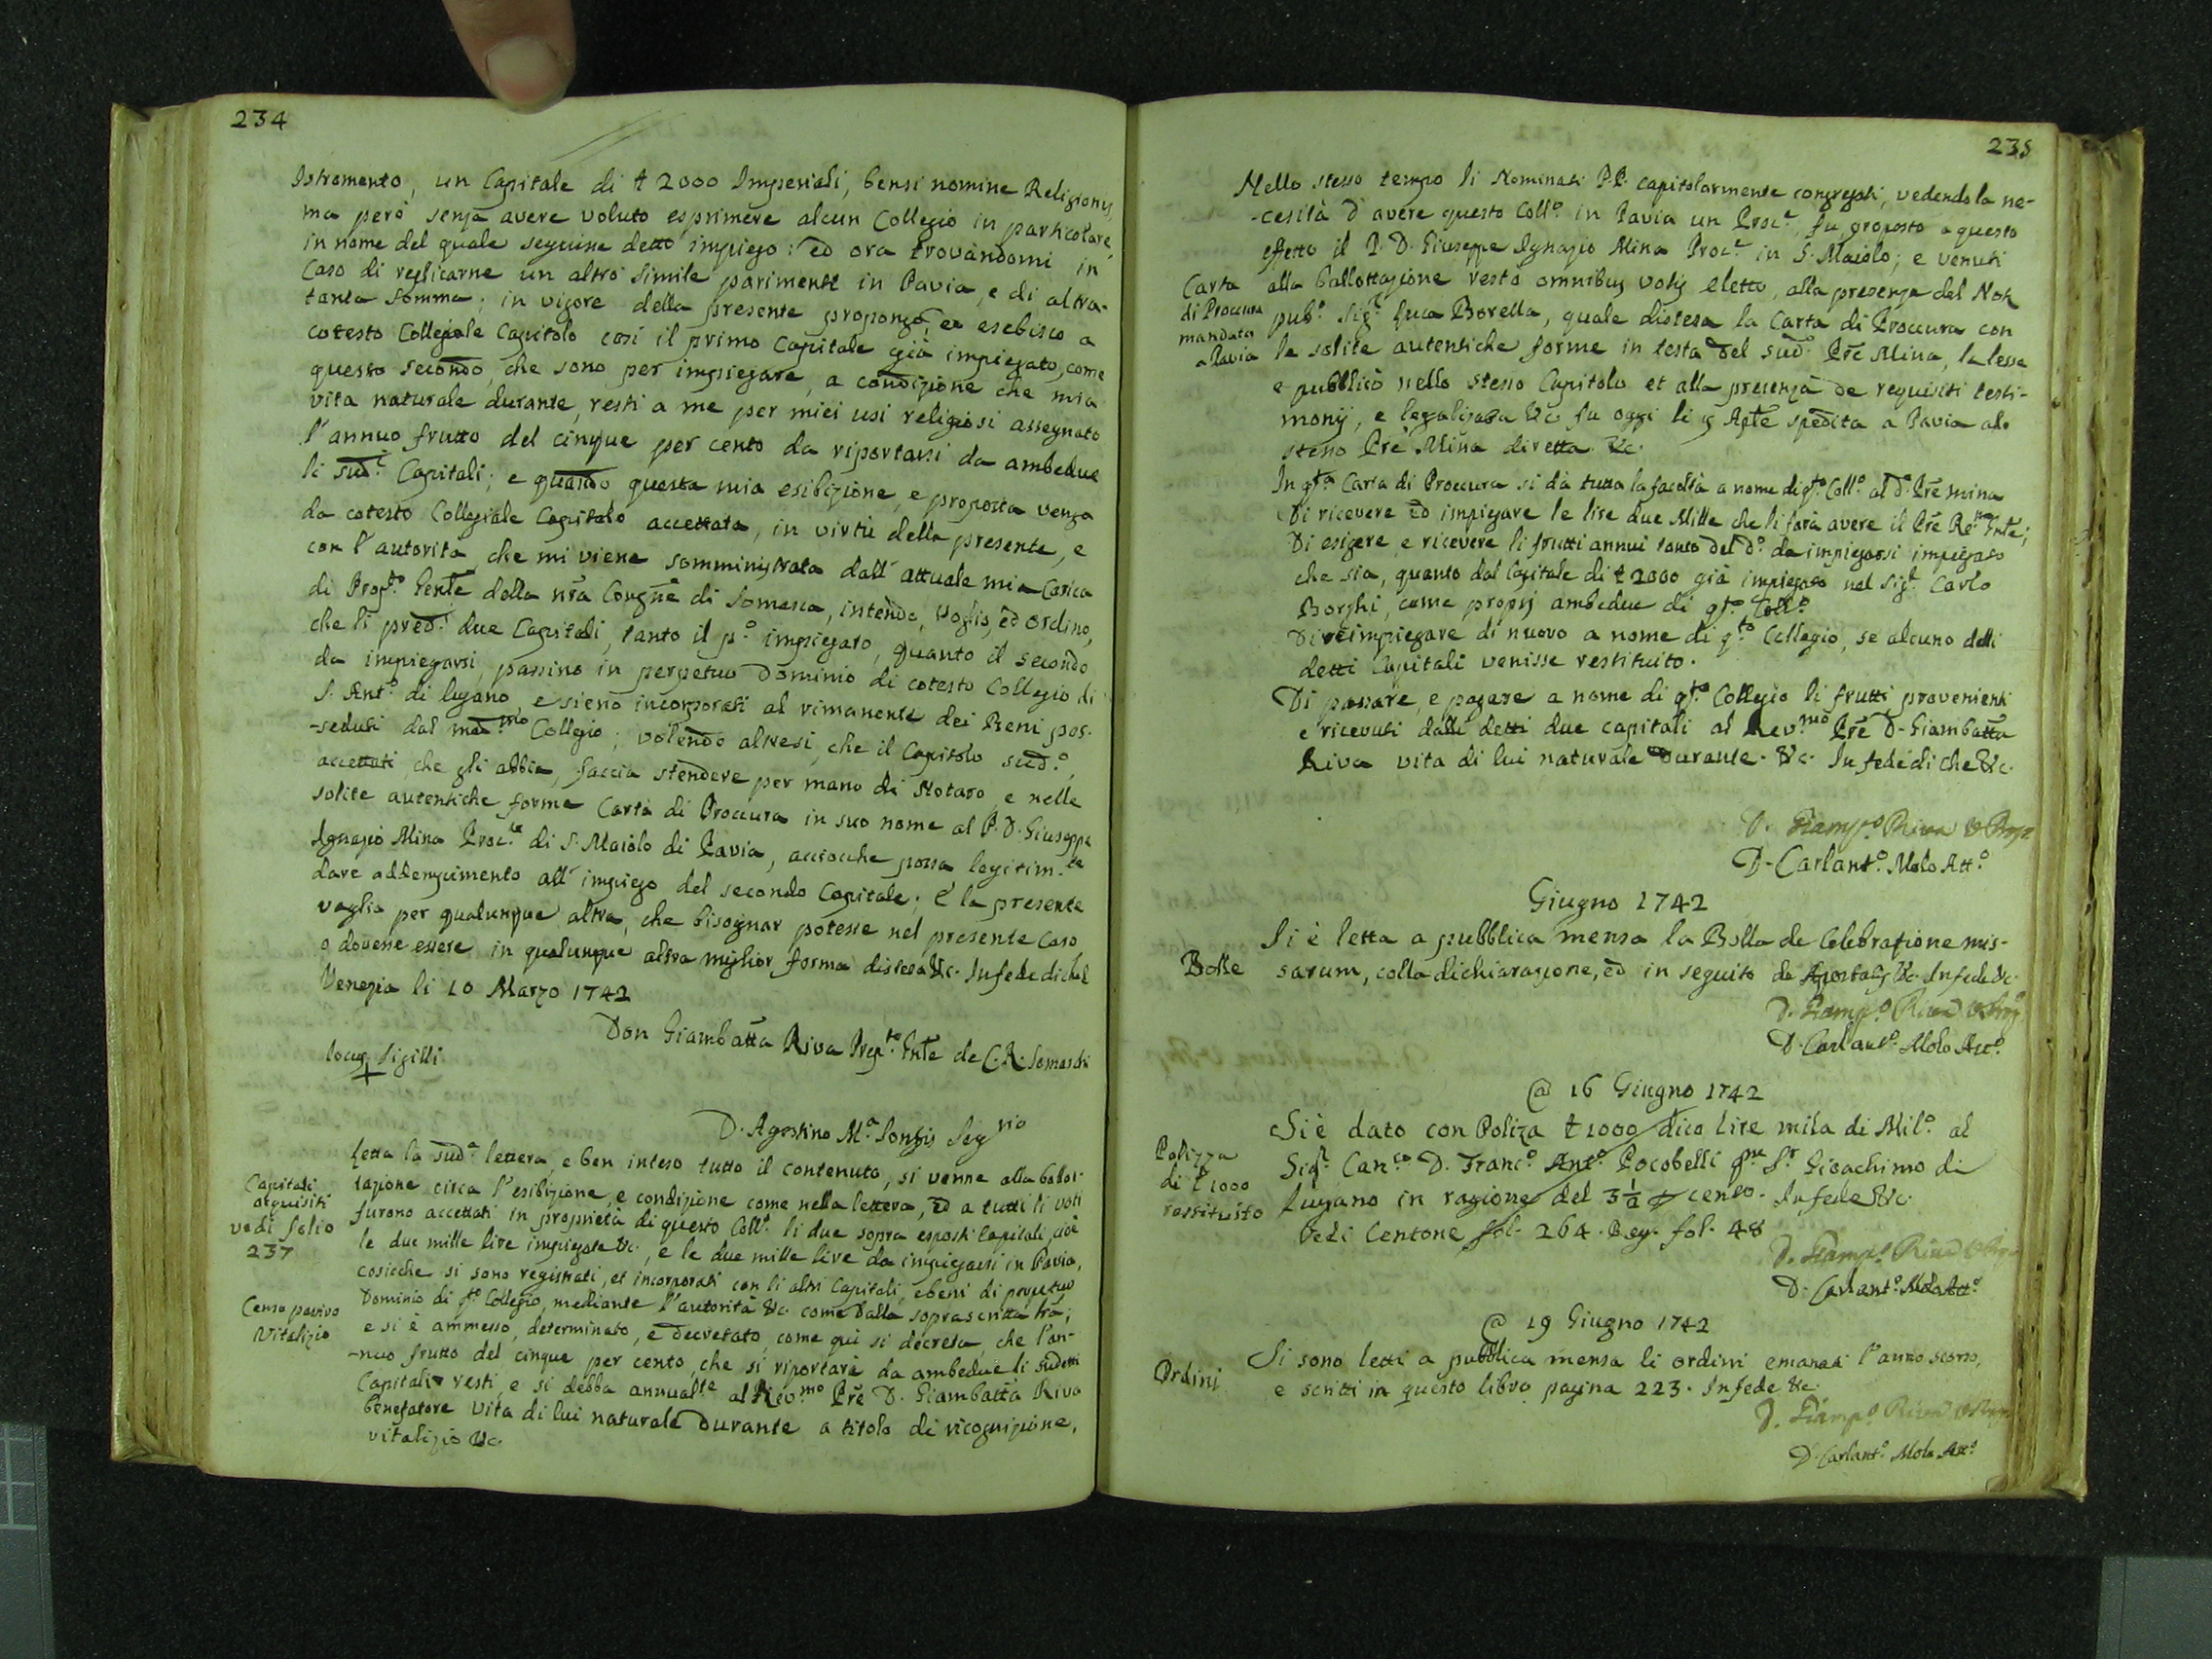 234
Istromento, un Capitale di ł 2000 Imperiali, bensi nomine Religionis,
ma però senza avere voluto esprimere alcun Collegio in particolare,
in nome del quale seguisse detto impiego: ed ora trovandomi in
Caso di replicarne un altro simile parimente in Pavia, e di altra-
tanta somma; in vigore della presente propongo, ed esebisco a
cotesto Collegiale Capitolo così il primo Capitale già impiegato, come
questo secondo, che sono per impiegare, a condizione che mia
vita naturale durante, resti a me per miei usi religiosi assegnato
l'annuo frutto del cinque per cento da riportarsi da ambedue
li sud.i Capitali; e quando questa mia esibizione, e proposta venga
da cotesto Collegiale Capitolo accettata, in virtù della presente, e
con l'autorità, che mi viene somministrata dall'attuale mia Carica
di Prop.to Gente della nra Congne di Somasca, intendo, voglio, ed ordino,
che li pred.i due Capitali, tanto il p.o impiegato, quanto il secondo
da impiegarsi, passino in perpetuo Dominio di cotesto Collegio di
S. Ant.o di lugano, e sieno incorporati al rimanente dei Beni pos-
-seduti dal med.mo Collegio; volendo altresi, che il Capitolo sud.o,
accettati che gli abbia, faccia stendere per mano di Notaro, e nelle
solite autentiche forme Carta di Proccura in suo nome al P. D. Giuseppe
Ignazio Mina Proc.re di S. Maiolo di Pavia, acciocche possa legitim.te
dare addempimento all'impiego del secondo Capitale; E la presente
vaglia per qualunque altra, che bisognar potesse nel presente Caso
o dovesse essere in qualunque altra miglior forma distesa &c. In fede di che &
Venezia li 10 Marzo 1742
Don Giambatta Riva Prep.to Gnle de C. R. Somaschi
locus Sigilli
+
D. Agostino M.a Seg.rio
Letta la sud.a lettera, e ben inteso tutto il contenuto, si venne alla ballot-
Capitali acquisiti vedi folio 237
tazione circa l'esibizione, e condizione come nella lettera, ed a tutti li voti
furono accettati in proprietà di questo Coll.o li due sopra esposti Capitali, cioè
le due mille lire impiegate &c., e le due mille lire da impiegarsi in Pavia,
cosicche si sono registrati, et incorporati con li altri Capitali, e beni di perpetuo
Dominio di q.to Collegio, mediante l'autorità &c. come dalla soprascritta lra;
Censo passivo Vitalizio
e si è ammesso, determinato, e decretato, come qui si decreta, che l'an-
-nuo frutto del cinque per cento, che si riportarà da ambedue li sudetti
Capitali resti, e si debba annual.te al Rev.mo Pre D. Giambatta Riva
benefatore vita di lui naturale durante a titolo di ricognizione,
vitalizio &c.
235
Nello stesso tempo li Nominati P.P. capitolarmente congregati, vedendo la ne-
-cesità d'avere questo Coll.o in Pavia un Proc.e, fu proposto a questo
effetto il P. D. Giuseppe Ignazio Mina Proc.e in S. Maiolo; e venuti
Carta di Proccura mandata a Pavia
alla ballottazione restò omnibus votis eletto, alla presenza del Not.
pub.o Sig.r Luca Borella, quale distesa la Carta di Proccura con
le solite autentiche forme in testa del sud.o Pre Mina, la lesse
e pubblicò nello stesso Capitolo et alla presenza de requisiti testi-
monij, e legalizata &c. fu oggi li 9 Aple spedita a Pavia al
stesso Pre Mina diretta &c.
In q.ta Carta di Proccura si dà tutta la facoltà a nome di q.to Coll.o al d.o Pre Mina
Di ricevere ed impiegare le lire due Mille che li farà avere il Pre Re.mo Gnle;
Di esigere, e ricevere li frutti annui tanto del d.o da impiegarsi impiegato
che sia, quanto dal Capitale di ł 2000 già impiegato nel Sig.r Carlo
Borghi, come proprj ambedue di q.to Coll.o
Di reimpiegare di nuovo a nome di q.to Collegio, se alcuno delli
detti Capitali venisse restituito.
Di passare, e pagare a nome di q.to Collegio li frutti provenienti
e ricevuti dalli detti due capitali al Rev.mo Pre D. Giambatta
Riva vita di lui naturale durante. &c. In fede di che &c.
D. Giamp.o Riva
D. Carlant.o Molo Att.o
Giugno 1742
Bolle
Si è letta a pubblica mensa la Bolla de Celebratione mis-
sarum, colla dichiarazione, ed in seguito de Apostatis &c. In fede &c.
D. Giamp.o Riva
D. Carlant.o Molo Att.o
@ 16 Giugno 1742
Polizza di ł 1000 restituito
Si è dato con Poliza ł 1000 dico lire mila di Mil.o al
Sig.r Can.co D. Franc.o Ant.o Pocobelli q.m S.r Gioachimo di
Lugano in ragione del 3½ cento. In fede &c.
Vedi Centone fol. 264. Reg. fol. 48
D. Giamp.o Riva
D. Carlant.o Molo Att.o
@ 19 Giugno 1742
Ordini
Si sono letti a pubblica mensa li ordini emanati l'anno scorso,
e scritti in questo libro pagina 223. In fede &c.
D. Giamp.o Riva
D. Carlant.o Molo Att.o